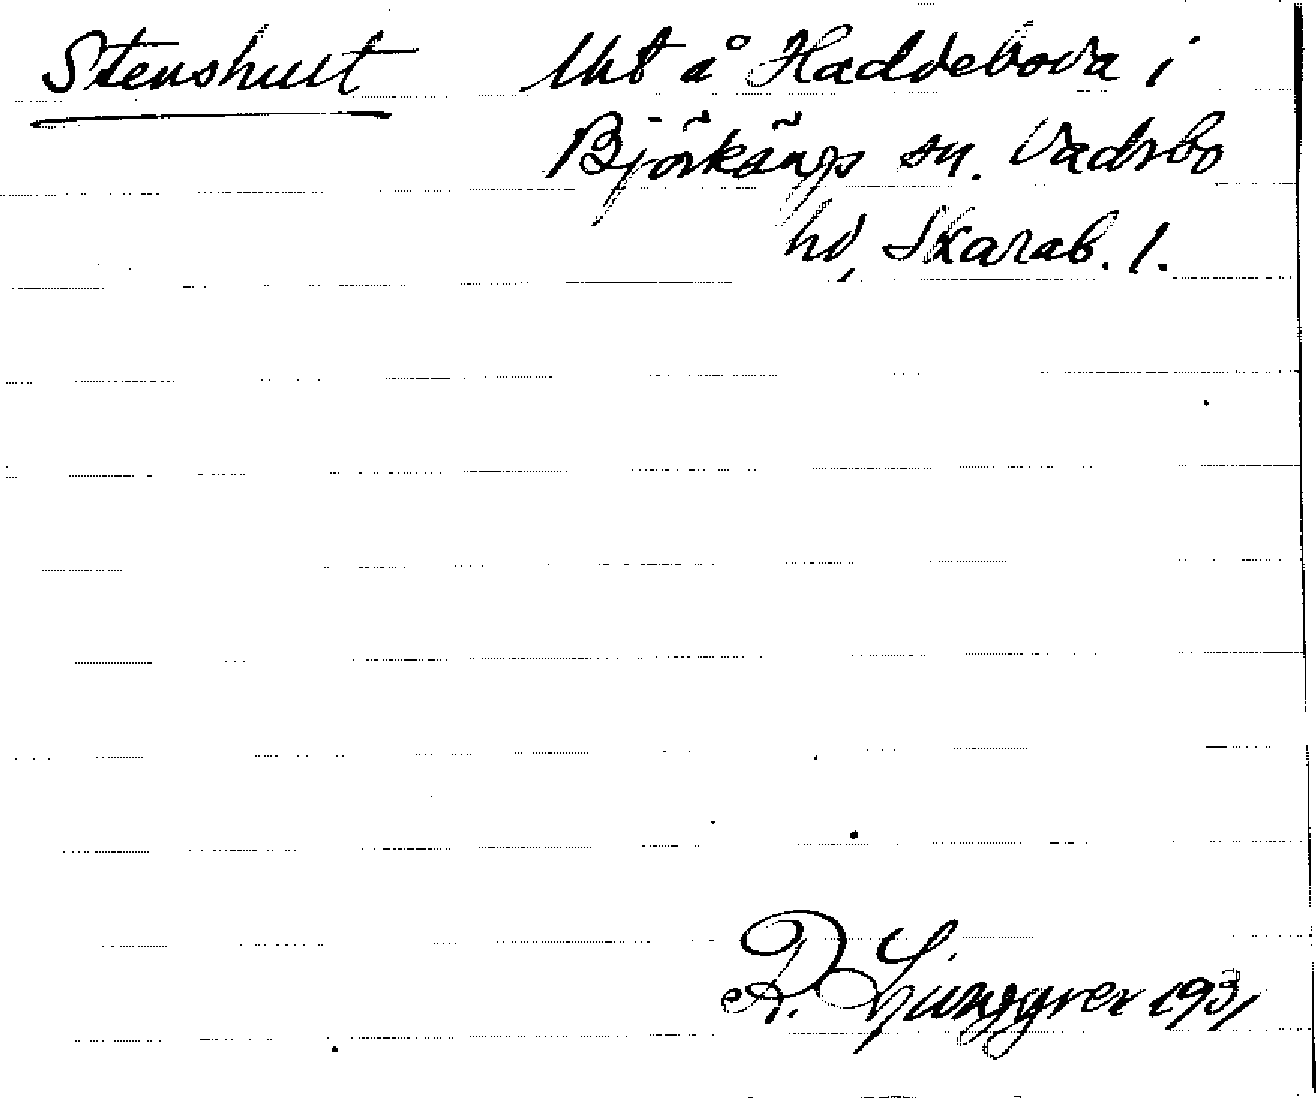 Stenshult Uht å Haddeboda i
Björkängs sn. Vadsbo
hd, Skarab. l.
R. Ljunggren 1931